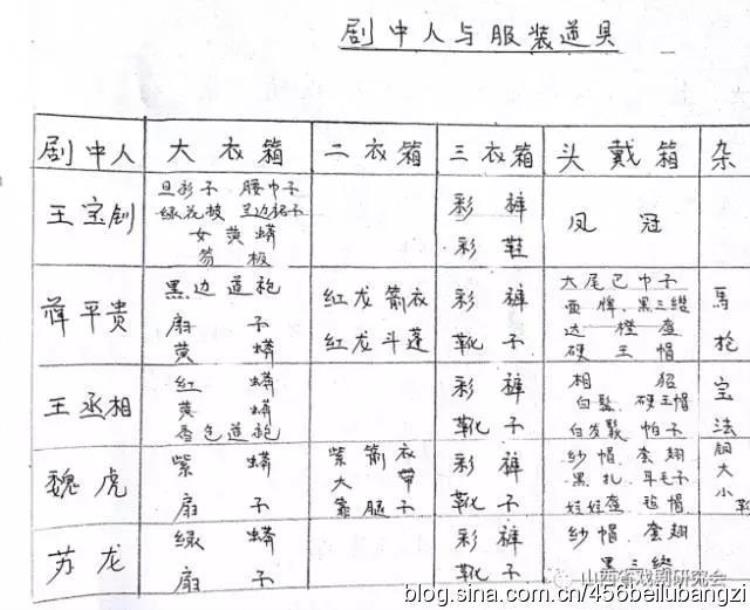 剧中人与服装道具
剧中人 大衣箱 二衣箱 三衣箱 头戴箱 杂
王宝钏
旦衫子 腰巾子
绿花被 兰边裙子
女黄蟒
笏板
彩裤
彩鞋
凤冠
薛平贵
黑边道袍
扇子
黄蟒
红龙箭衣
红龙斗蓬
彩裤
靴子
大尾巴巾子
面牌.黑三绺
硬王帽
馬
枪
王丞相
红蟒
黄蟒
香色道袍
彩裤
靴子
相貂
白髯.硬王帽
白发鬏 帕子
宝
法
魏虎
紫蟒
扇子
紫箭衣
大带
靠腿子
彩裤
靴子
纱帽.套翅
黑扎.耳毛子
娃娃盔 毡帽
铜
大
小
苏龙
绿蟒
扇子
彩裤
靴子
纱帽.套翅
黑三绺
山西省戏剧研究会
blog.sina.com.cn/456beilubangzi